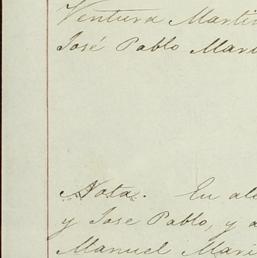 Ventura Martin
José Pablo Mari
Nota. En al
y Jose Pablo, y a
Manuel Mari